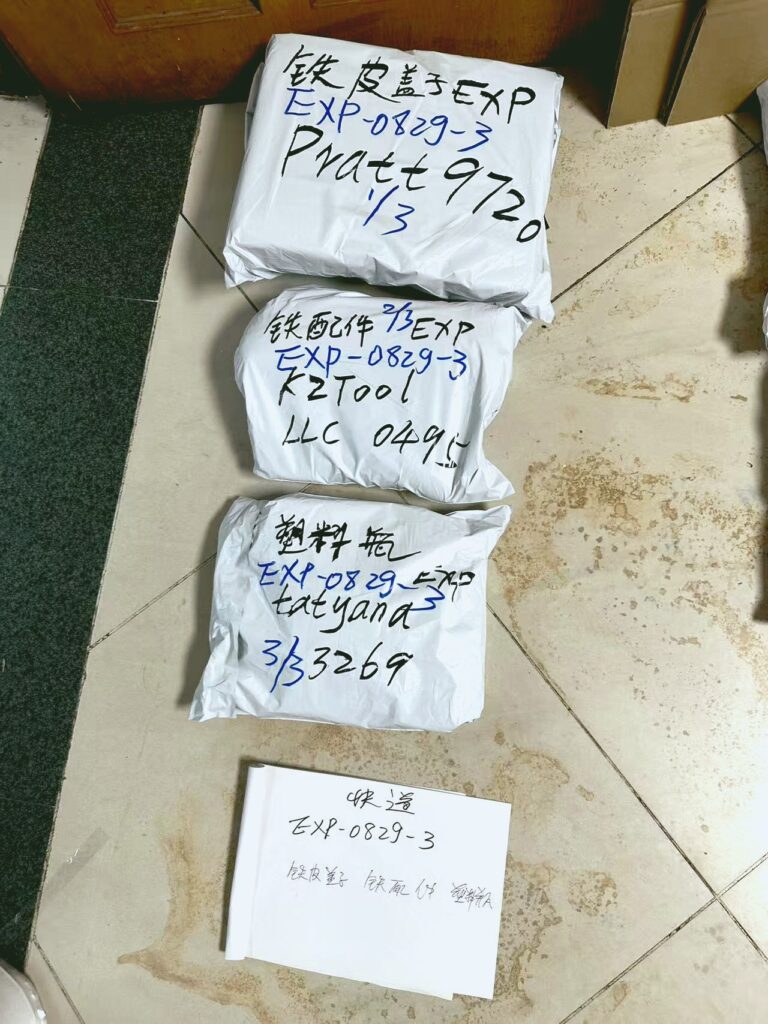 铁皮盖子EXP
EXP-0829-3
Pratt 9720
1/3
铁配件 2/3 EXP
EXP-0829-3
K2Tool
LLC 0495
塑料瓶
EXP-0829-3 EXP
tatyana
3/3 3269
快道
EXP-0829-3
铁皮盖子 铁配件 塑料瓶